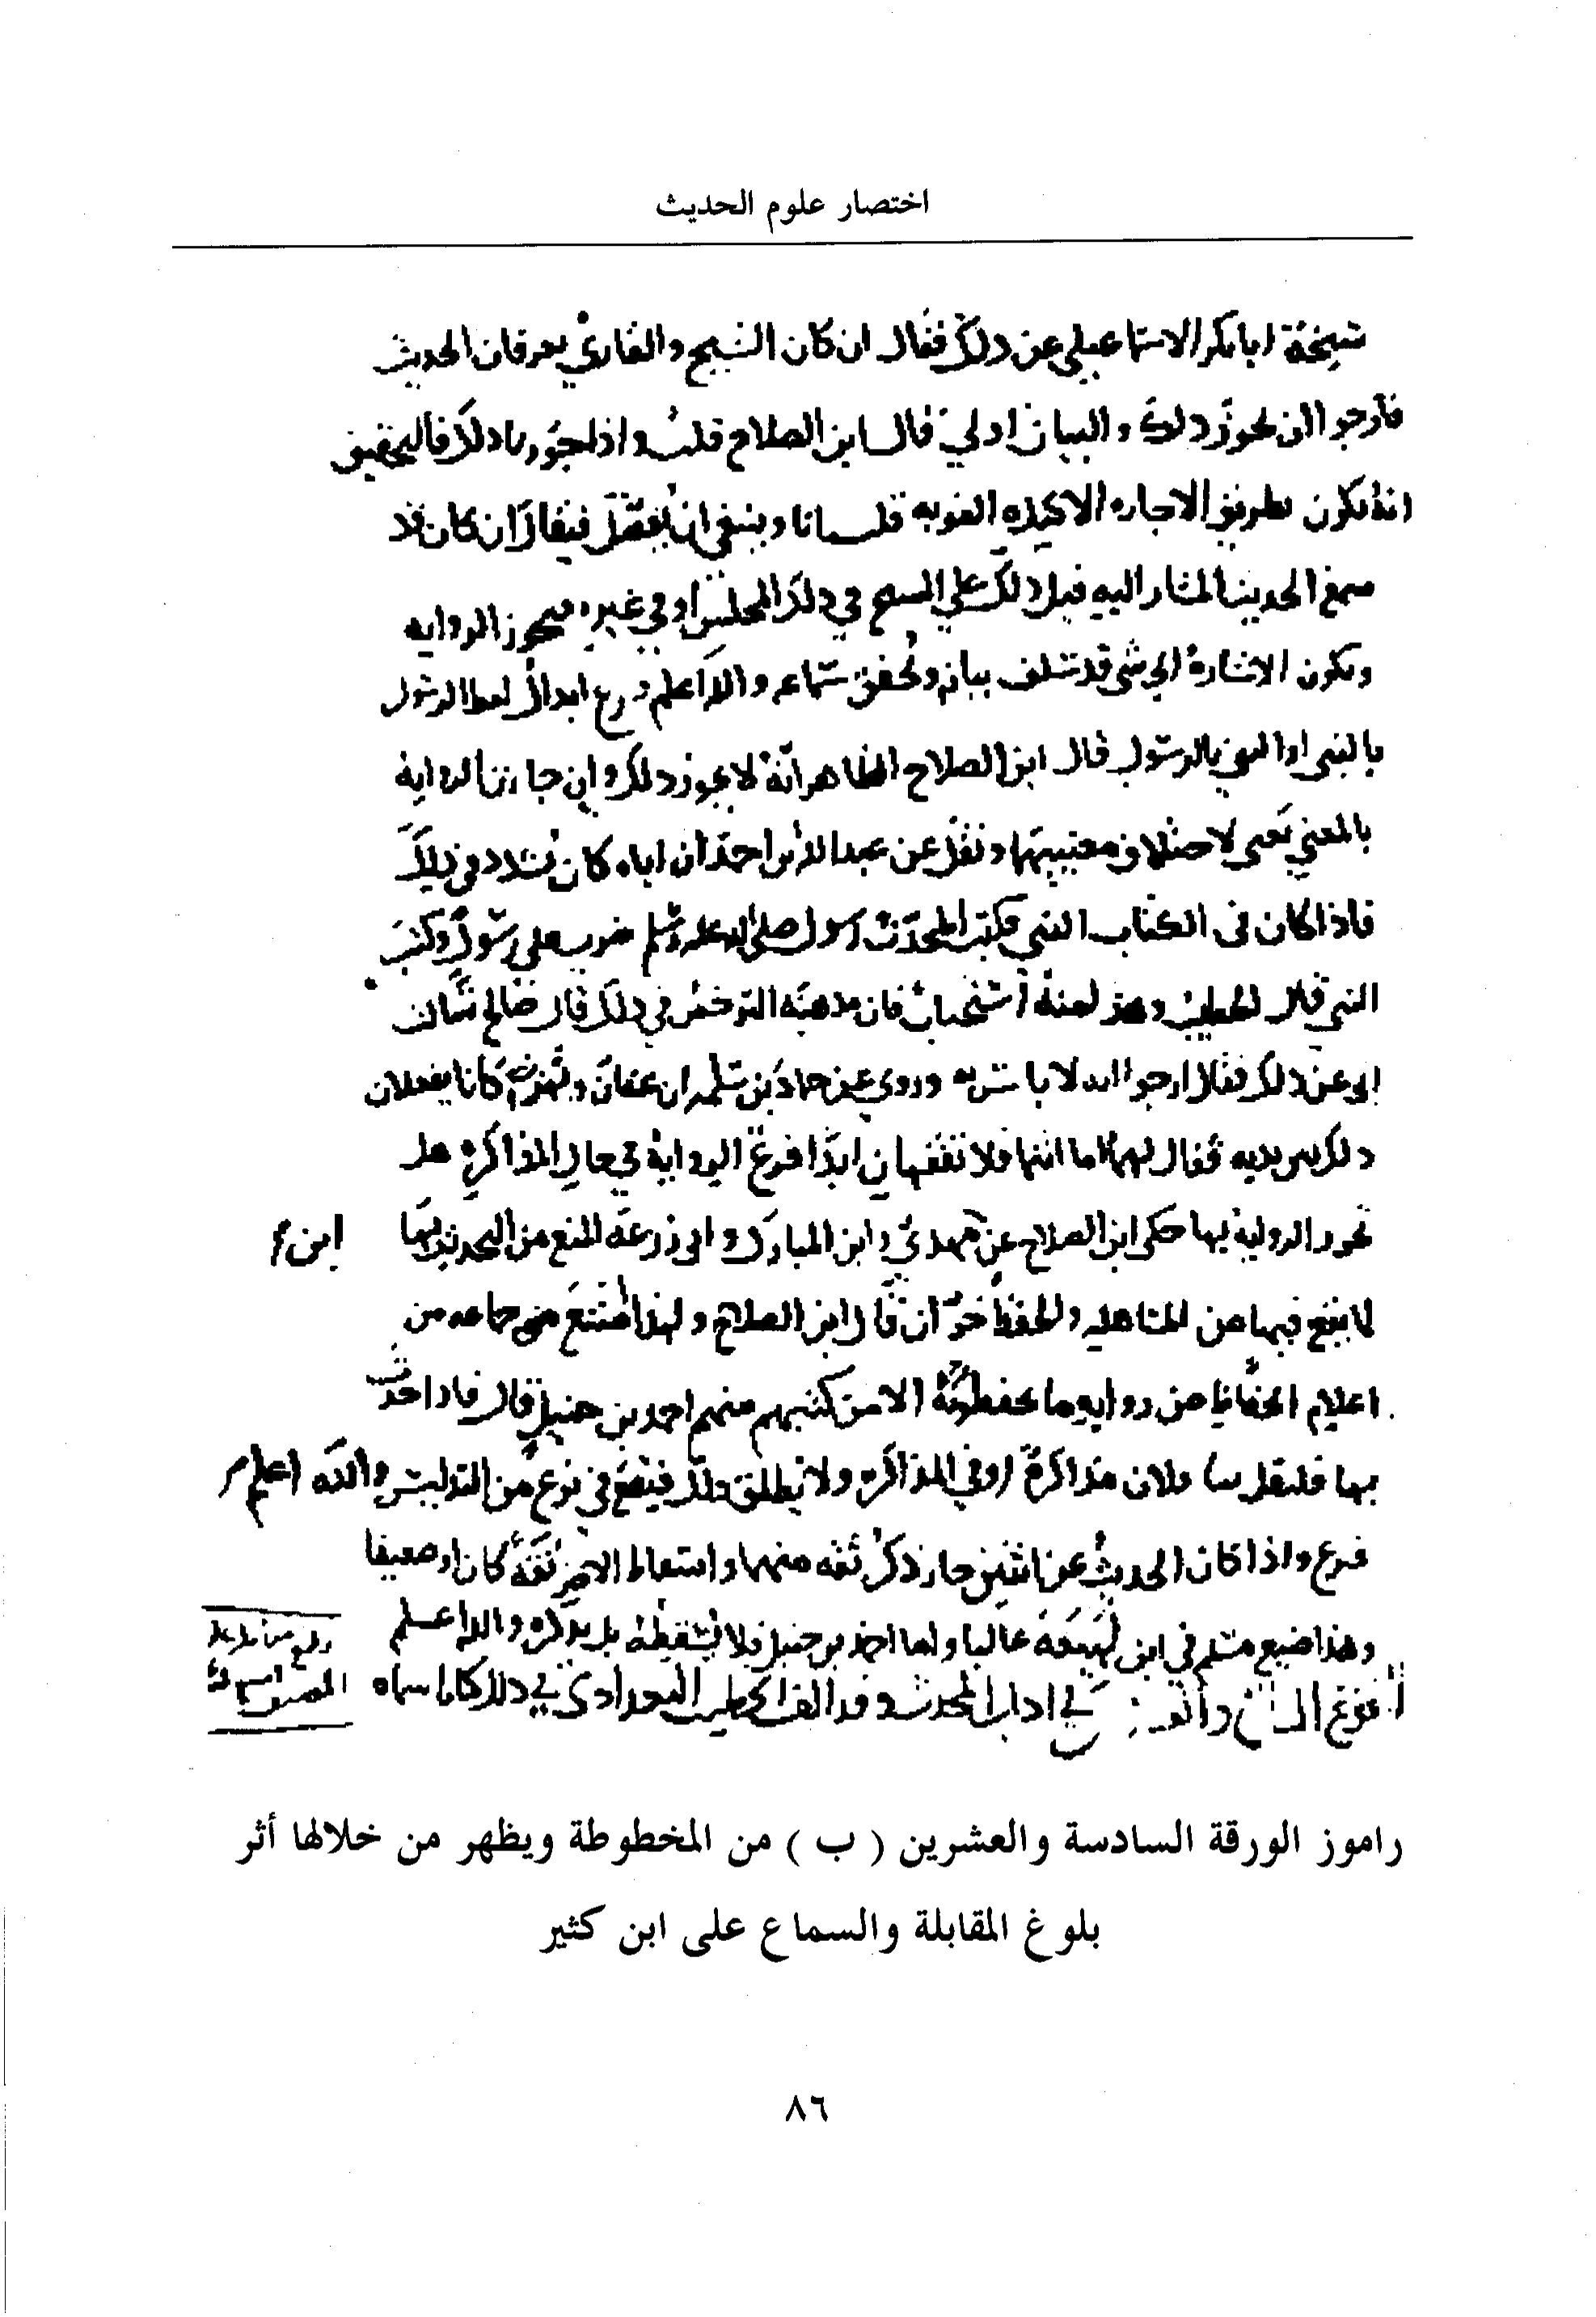 اختصار علوم الحديث
شيخه ابابكر الاسماعيلى عن ذلك فقال ان كان الشيخ والقارئ يعرفان الحديث
فأرجوا ان يجوز ذلك والبيان اولي قال ابن الصلاح قلت واذا جوزنا ذلك فالتحقيق
انه يكون بطريق الاجازه الاكيده القويه قلت انا وينبغي ان يفصل فيقال ان كان قد
سمع الحديث المشار اليه قبل ذلك علي الشيخ في ذلك المجلس او في غيره فيجوز الروايه
وتكون الاشارة الي شي قد سلف بيانه وتحقق سماعه والله اعلم فرع ابدال لفظ الرسول
بالنبي او النبي بالرسول قال ابن الصلاح الظاهر انه لا يجوز ذلك وان جازت الرواية
بالمعني يعني لاختلاف معنييهما ونقل عن عبدالله بن احمد ان اباه كان يشدد في ذلك
فاذا كان في الكتاب النبي فكتب المحدث رسول صلى الله عليه وسلم ضرب على رسول وكتب
النبي قال الخطيب وهذا منه استحباب فان مذهبه الترخص في ذلك قال صالح سالت
ابي عن ذلك فقال ارجوا انه لا باس به وروي عن حماد بن سلمه ان عفان وبهز كانا يفعلان
ذلك بين يديه فقال لهما اما انتما فلا تفقهان ابدا فرع الرواية في حال المذاكره هل
تجوز الرواية بها حكى ابن الصلاح عن مهدي وابن المبارك وابى زرعة المنع من التحديث بها
ابن
لما يقع فيها من المساهله والحفظ خوان قال ابن الصلاح ولهذا امتنع جماعه من
اعلام الحفاظ من روايه ما يحفظونه الا من كتبهم منهم احمد بن حنبل قال فاذا حدث
بها فليقل حدثنا فلان مذاكرة او في المذاكره ولا يطلق ذلك فيقع في نوع من التدليس والله اعلم
فرع واذا كان الحديث عن اثنين جاز ذكر ثقه منهما واسقاط الاخر ثقة كان او ضعيفا
وهذا صنيع مسلم في ابن لهيعة غالبا واما احمد بن حنبل فلا يسقطه بل يذكره والله اعلم
في اداب المحدث وقد الف الخطيب البغدادى في ذلك كتابا سماه
راموز الورقة السادسة والعشرين ( ب ) من المخطوطة ويظهر من خلالها أثر
بلوغ المقابلة والسماع على ابن كثير
٨٦